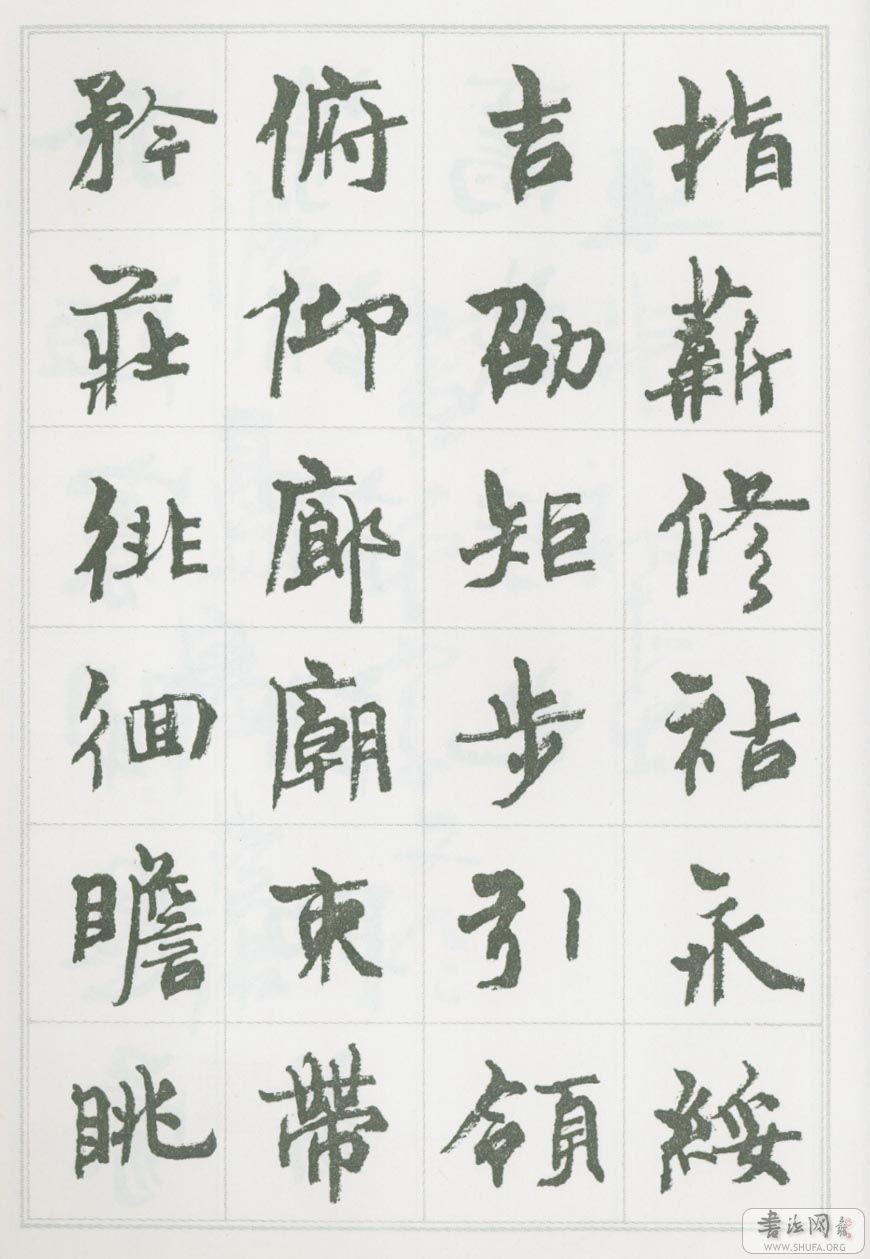 指薪修祜永綏
吉劭矩步引領
俯仰廊廟束帶
矜莊徘徊瞻眺
书法网
WWW.SHUFA.ORG